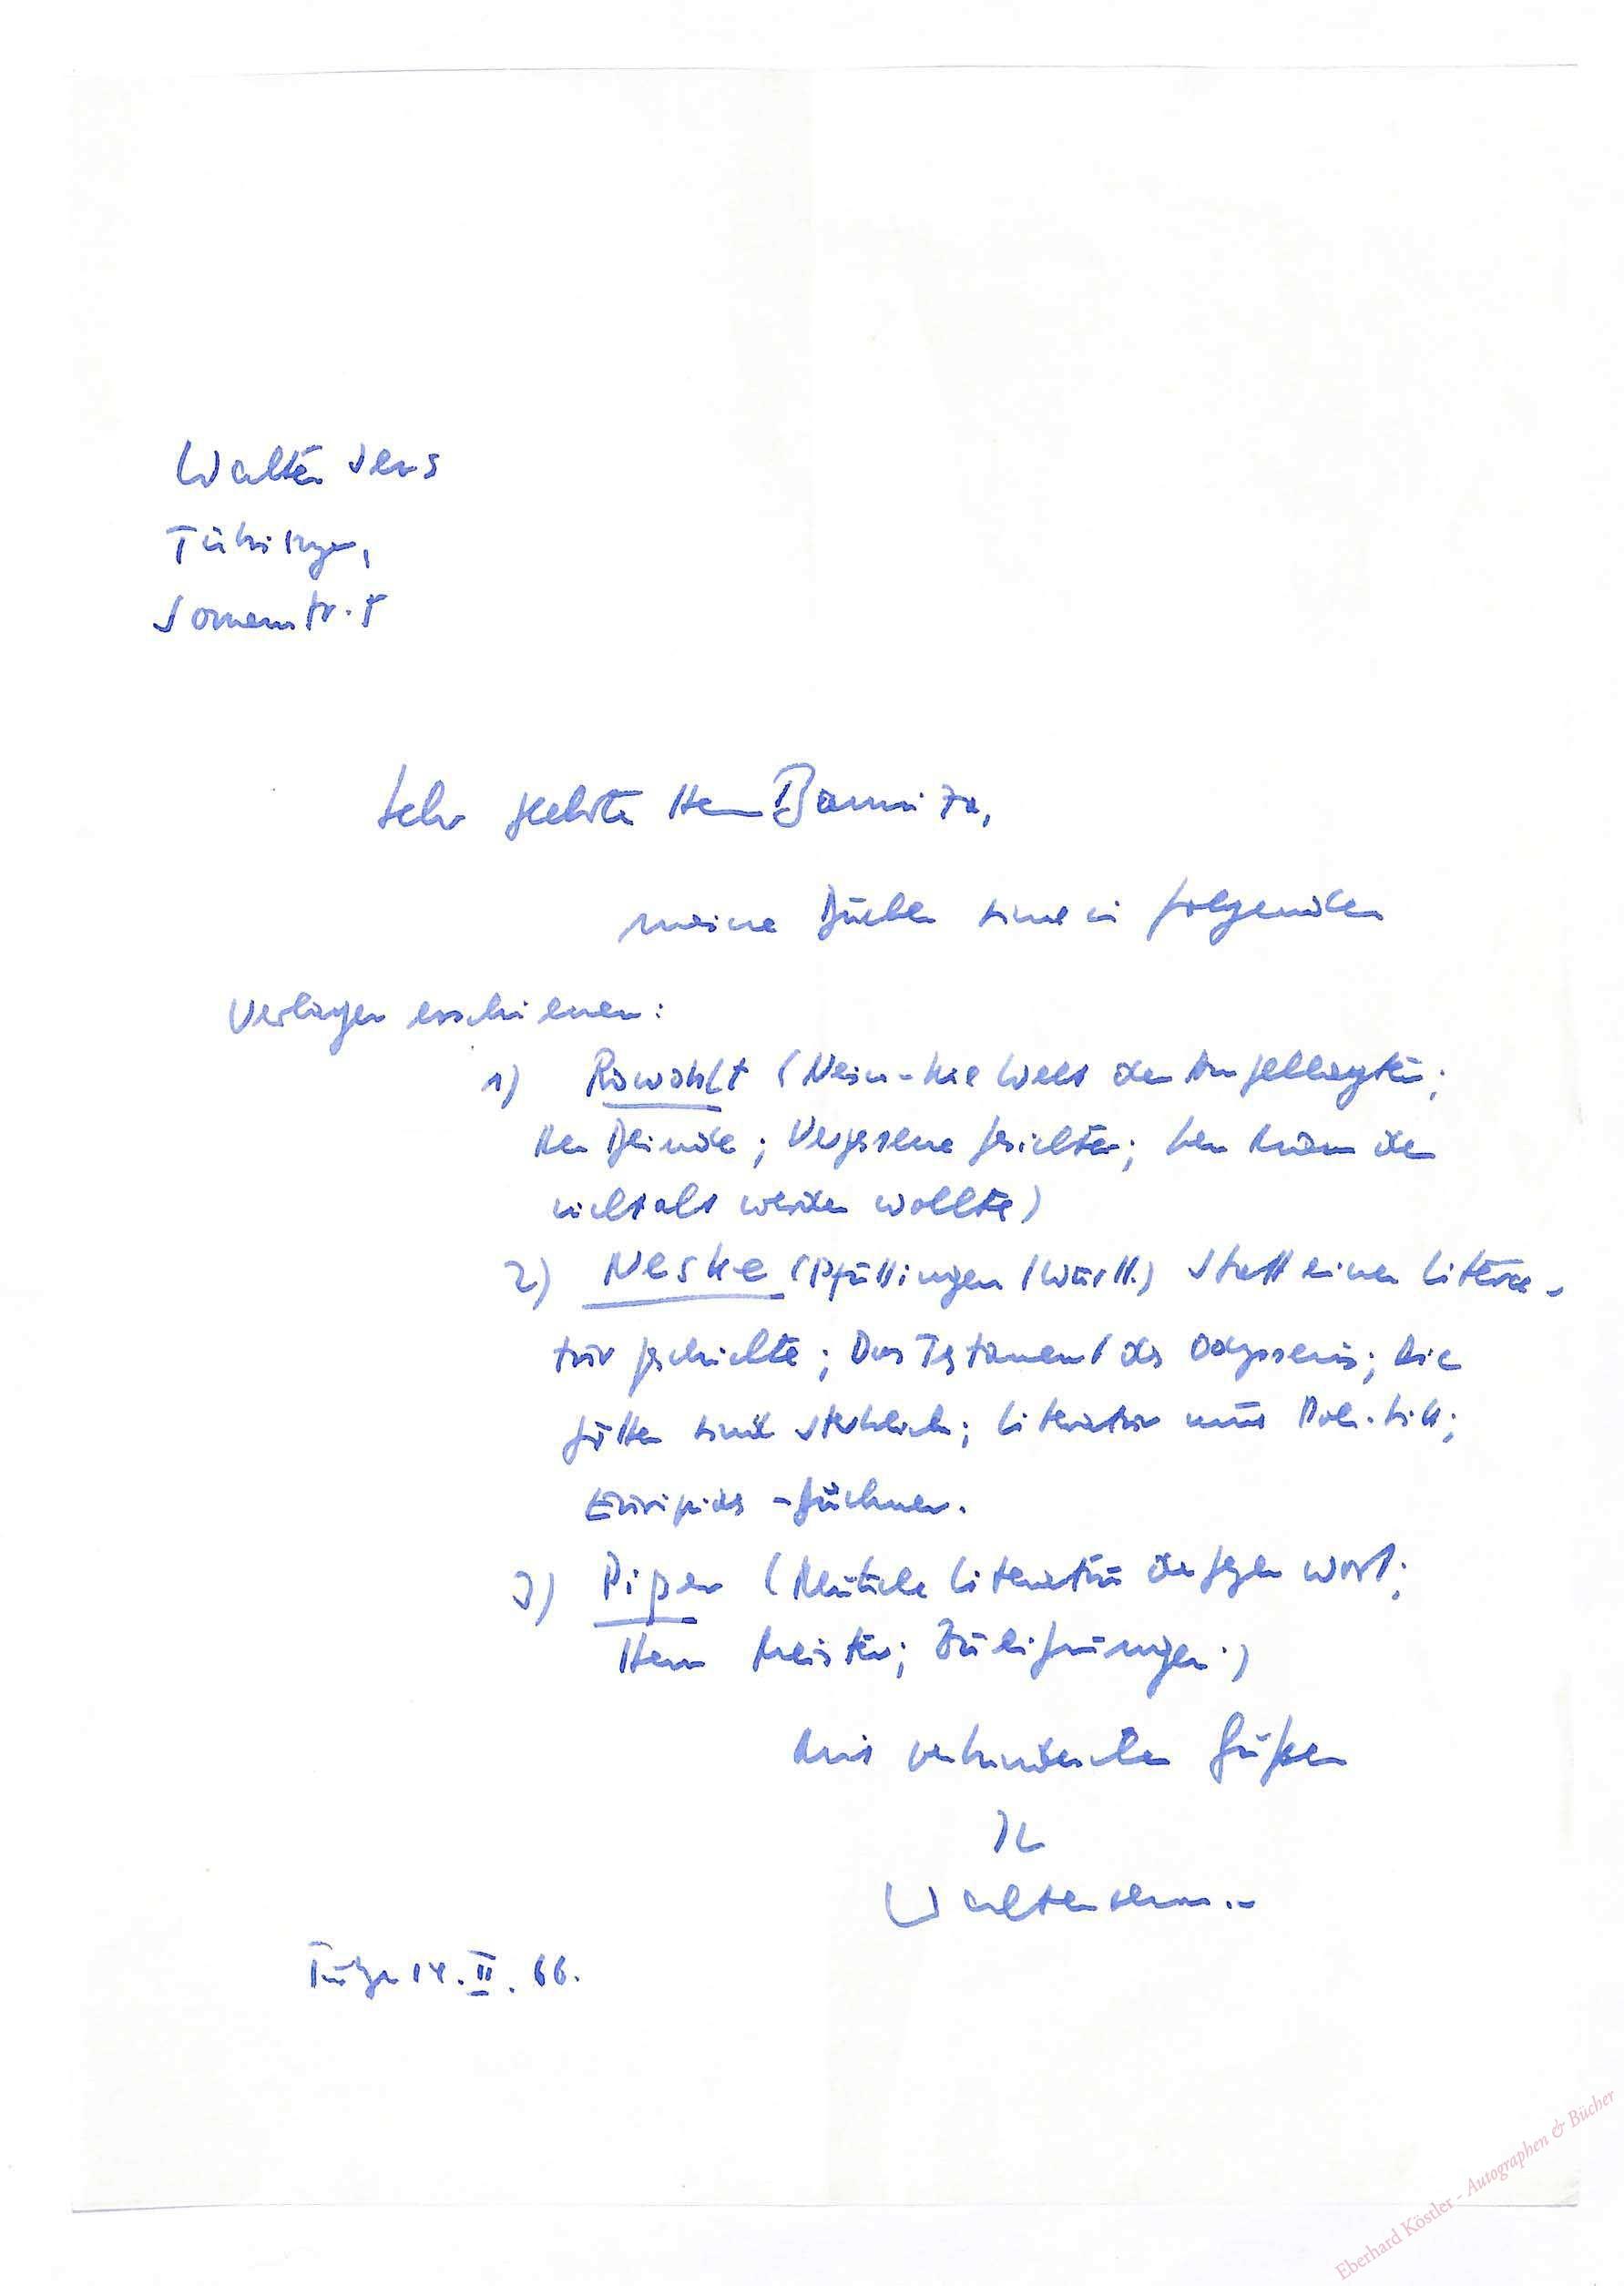 Walter Jens
Tübingen,
Sonnenstr. 5
Sehr geehrter Herr
meine Bücher sind in folgenden
Verlagen erschienen:
1) Rowohlt (Nein - die Welt der Angeklagten;
Der Blinde; Vergessene Gesichter; Der Mann der
nicht alt werden wollte)
2) Neske (Pfullingen (Württ.) Statt einer Litera-
turgeschichte; Das Testament des Odysseus; Die
Götter sind sterblich; Literatur und Politik;
Euripides - Büchner.
3) Piper (Deutsche Literatur der Gegenwart;
Herr Meister; Zueignungen.)
Mit verbindlichen Grüßen
Ihr
Walter Jens.
14. II. 66.
Eberhard Köstler - Autographen & Bücher